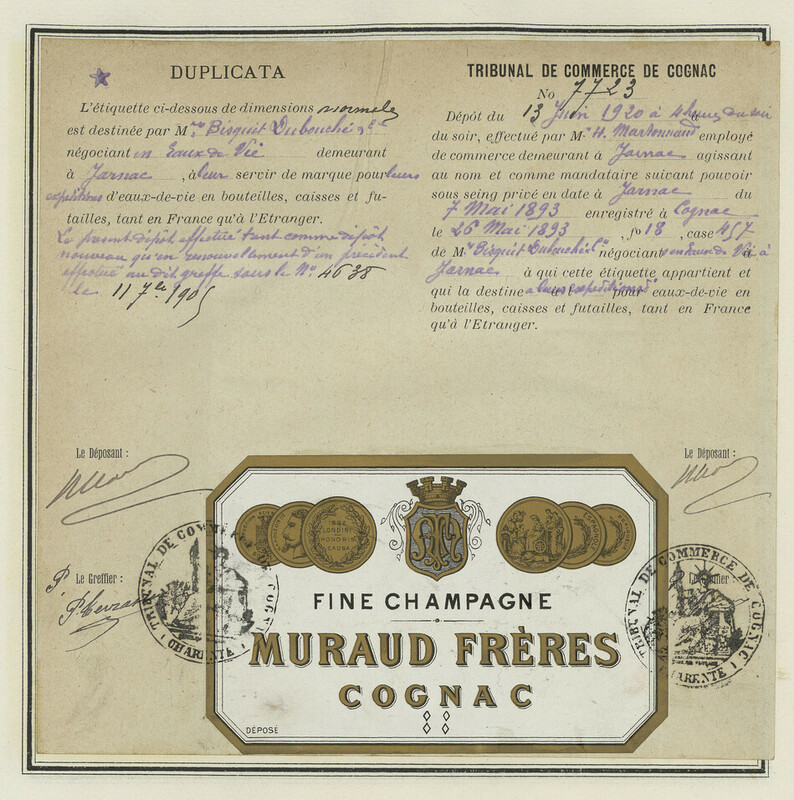 DUPLICATA
L'étiquette ci-dessous de dimensions normales
est destinée par M.rs Bisquit Dubouché & Cie
négociant en Eaux de Vie demeurant
à Jarnac, à leur servir de marque pour leurs
expéditions d'eaux-de-vie en bouteilles, caisses et fu-
tailles, tant en France qu'à l'Etranger.
Le présent dépôt effectué tant comme dépôt
nouveau qu'en renouvelament d'un précédent
effectué au dit greffe sous le No 4638
le 11 7bre 1905
TRIBUNAL DE COMMERCE DE COGNAC
No 7723
Dépôt du 13 Juin 1920 à 4 heures du soir
du soir, effectué par M. H. Martonnaud employé
de commerce demeurant à Jarnac agissant
au nom et comme mandataire suivant pouvoir
sous seing privé en date à Jarnac du
7 Mai 1893 enregistré à Cognac
le 26 Mai 1893, fo 18, case 457
de Mrs Bisquit Dubouché & Cie négociants en Eaux de Vie à
Jarnac à qui cette étiquette appartient et
qui la destine à leurs expéditions d' eaux-de-vie en
bouteilles, caisses et futailles, tant en France
qu'à l'Etranger.
Le Déposant :
Le Déposant :
Le Greffier :
Le Greffier :
TRIBUNAL DE COMMERCE DE COGNAC
(CHARENTE)
TRIBUNAL DE COMMERCE DE COGNAC
(CHARENTE)
1862
LONDINI
HONORIS
CAUSA
FINE CHAMPAGNE
MURAUD FRÈRES
COGNAC
DÉPOSÉ